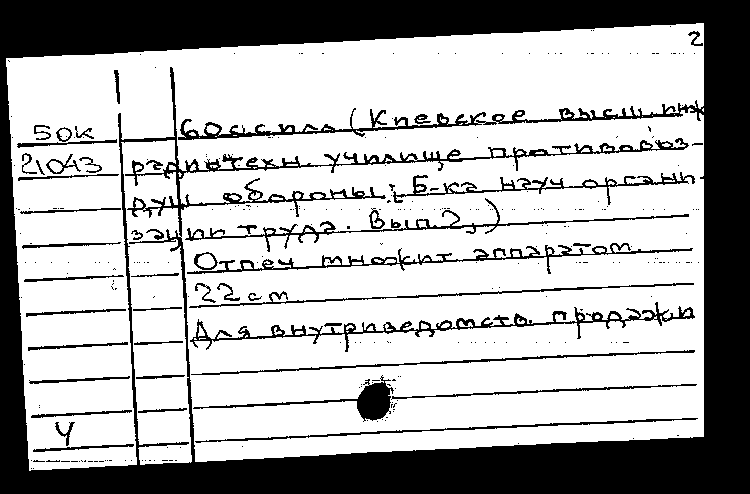 2
50к 60 с с илл (Киевское высш. инж
21043 радиотехн. училище противовоз-
душ обороны; Б-ка науч органи-
зации труда. Вып. 2,)
Отпеч множит аппаратом.
22 см
Для внутриведомств. продажи
У